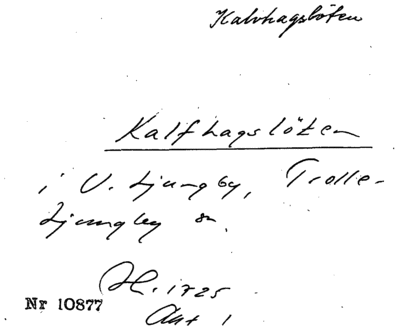 Kalvhagslöten
Kalfhagslöten
i V. Ljungby, Trolle-
Ljungby sn.
H. 1725
Akt 1
Nr 10877